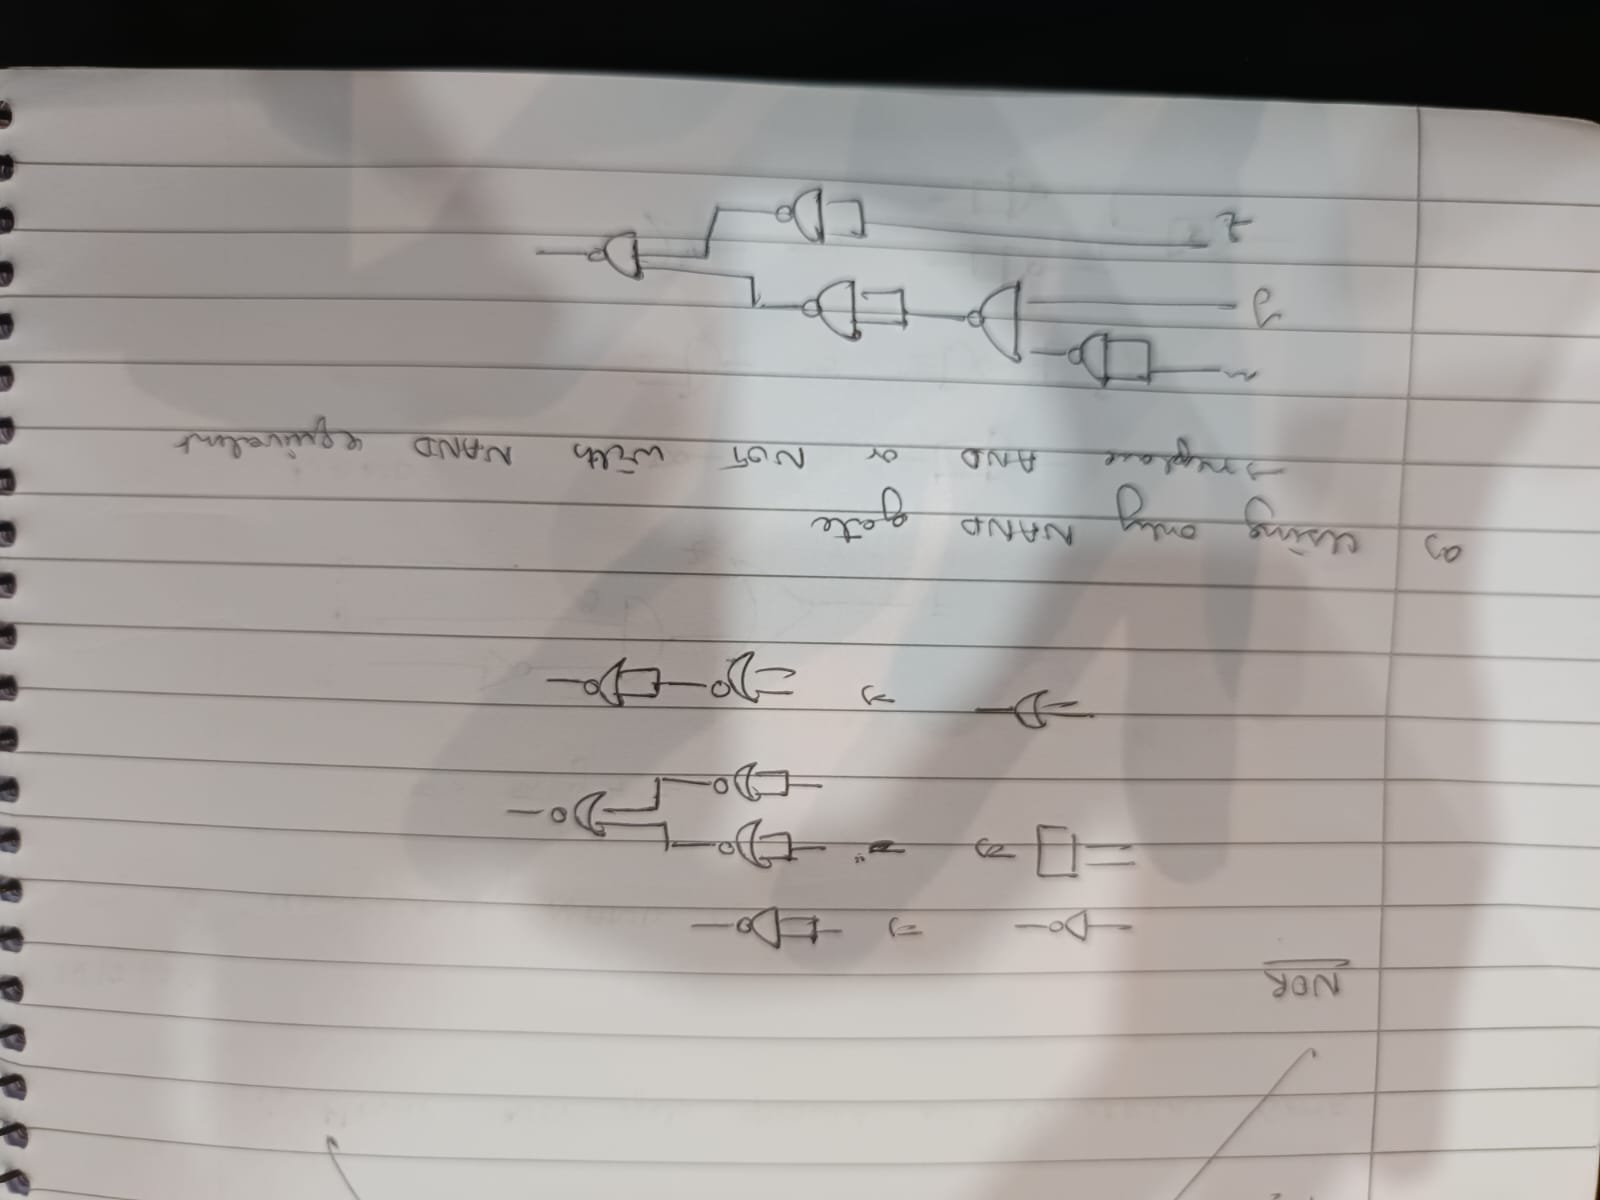 NOR
⇒
⇒
⇒
a) Using only NAND gate
→ replace AND or NOT with NAND equivalent
x
y
z